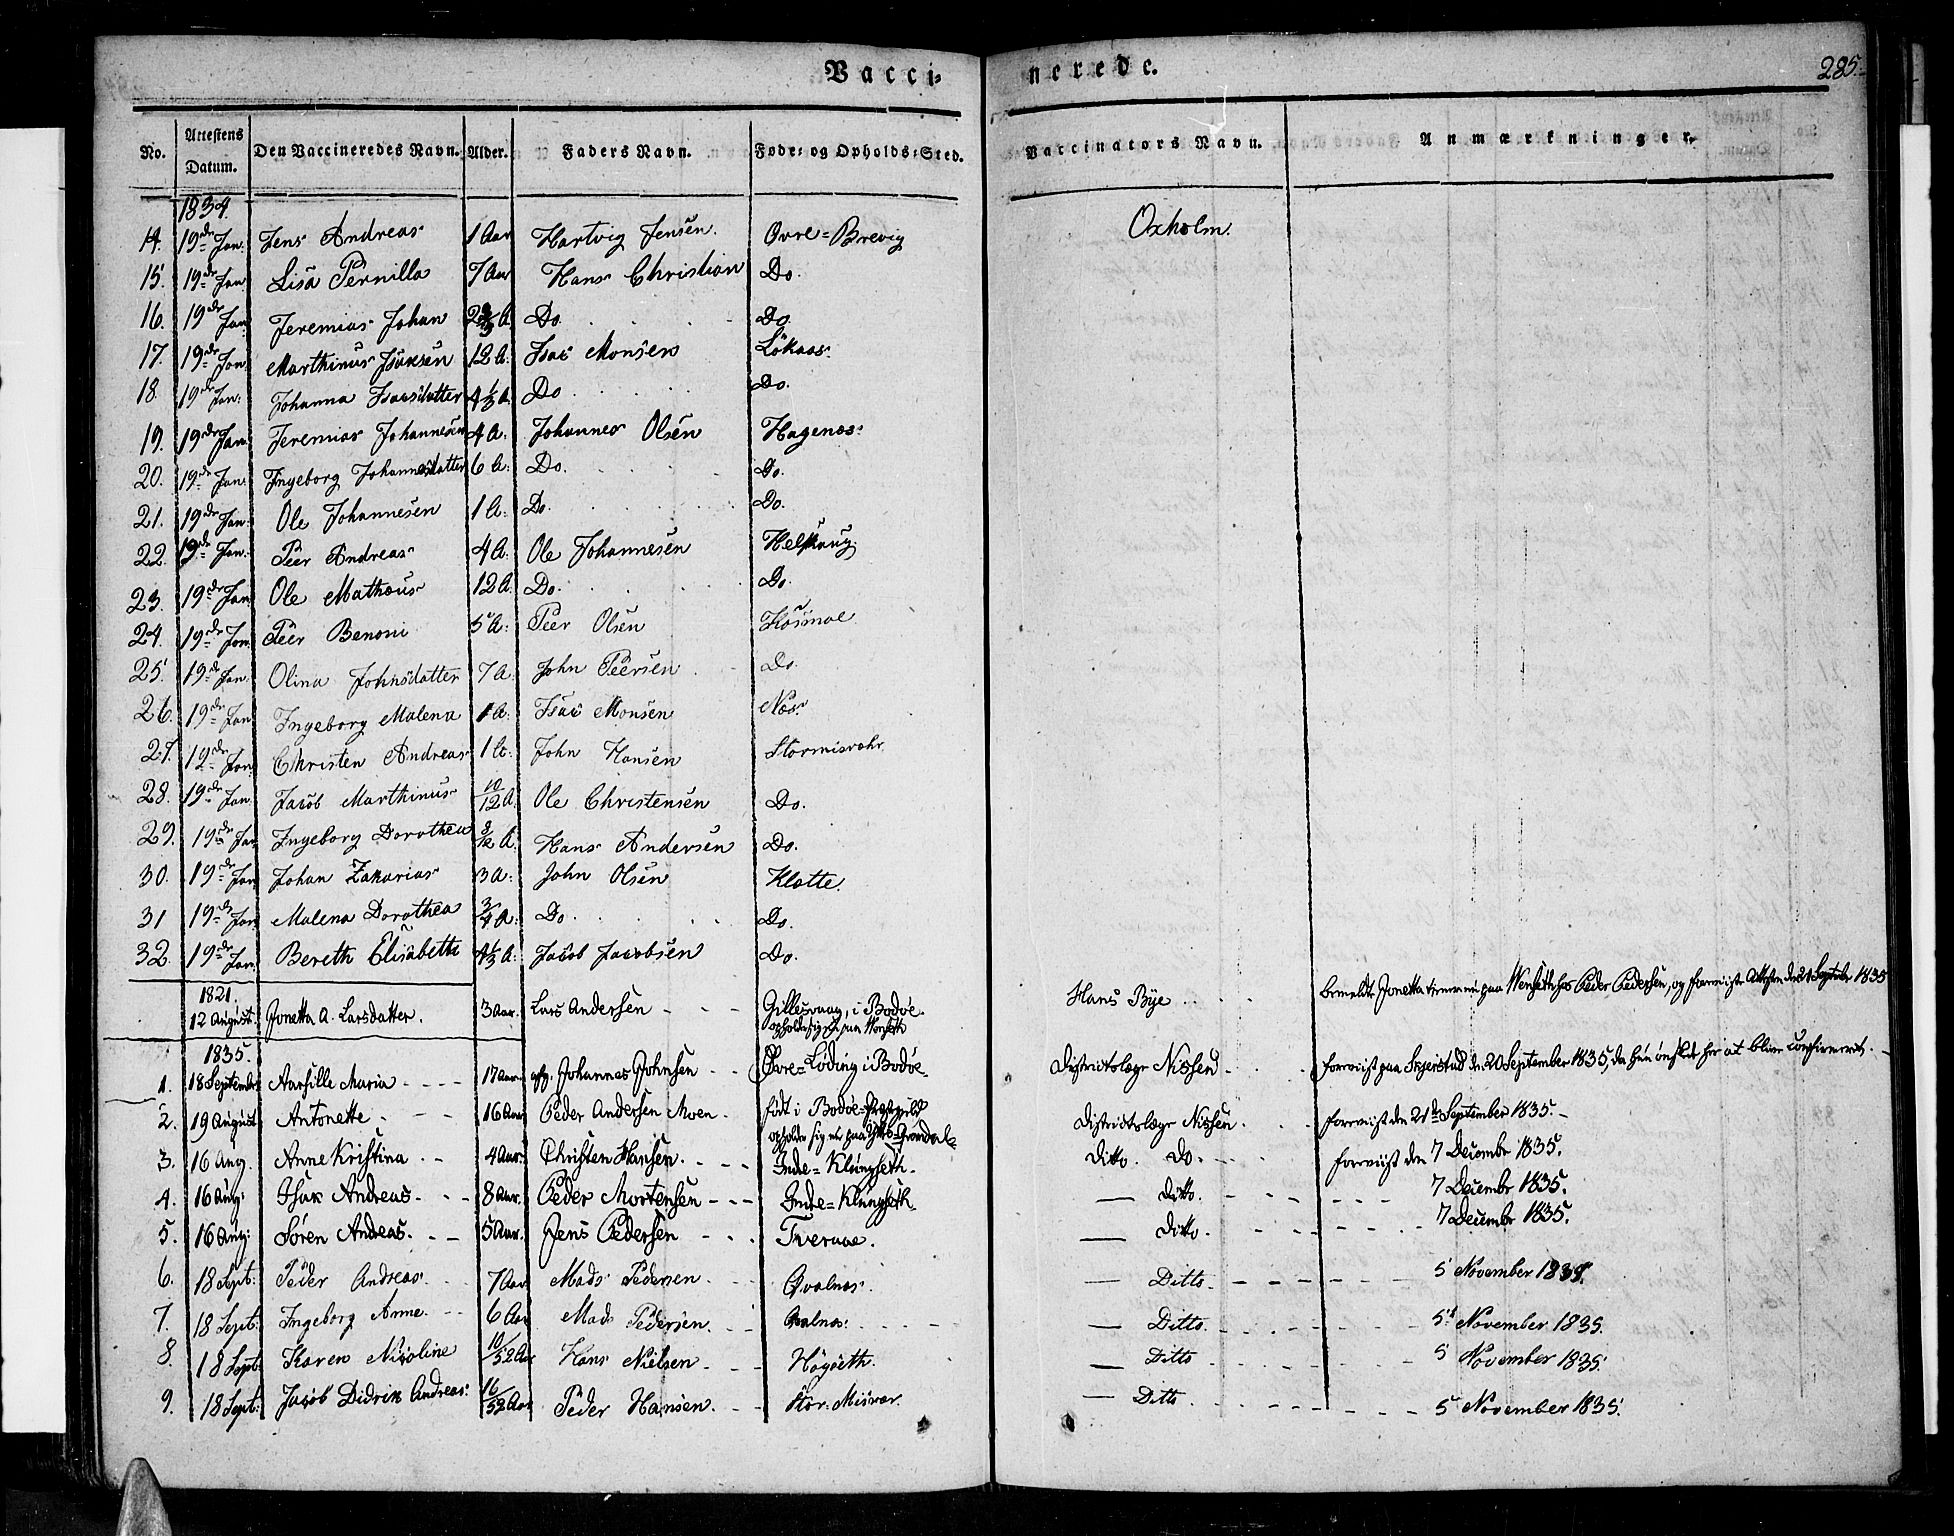 Vacci-
nerede.
285.
No. Attestens Datum. Den Vaccineredes Navn. Alder. Faders Navn. Føde- og Opholds-Sted. Vaccinators Navn. Anmærkninger.
1834.
14. 19de Jan. Jens Andreas 1 Aar Hartvig Jensen. Ovre=Brevig Oxholm.
15. 19de Jan. Lisa Pernilla 7 Aar Hans Christian Do.
16. 19de Jan. Jeremias Johan A. Do. Do.
17. 19de Jan. Marthinus Isaksen 12 A. Isac Monsen Lökaas.
18. 19de Jan. Johanna Isacsdatter 4 1/3 A. Do. Do.
19. 19de Jan. Jeremias Johannesen 4 A. Johannes Olsen Hagenæs.
20. 19de Jan. Ingeborg Johannesdatter 6 A. Do. Do.
21. 19de Jan. Ole Johannesen 1 A. Do. Do.
22. 19de Jan. Peer Andreas 4 A. Ole Johannesen Helskaug.
23. 19de Jan. Ole Mathæus 12 A. Do. Do.
24. 19de Jan. Peer Benoni 5 A. Peer Olsen Kosmoe
25. 19de Jan. Olina Johnsdatter 7 A. John Peersen Do.
26. 19de Jan. Ingeborg Malena 1 A. Isac Monsen Næs.
27. 19de Jan. Christen Andreas 1 A. John Hansen Stormisvær
28. 19de Jan. Jacob Marthinus 10/12 A. Ole Christensen Do.
29. 19de Jan. Ingeborg Dorothea 8/12 A. Hans Andersen Do.
30. 19de Jan. Johan Zakarias 3 A. John Olsen Klætte.
31 19de Jan. Malena Dorothea 3/4 A. Do. Do.
32. 19de Jan. Bereth Elisabeth 4 1/3 A. Jacob Jacobsen Do.
1821.
12 August. Jonetta A. Larsdatter. 3 Aar. Lars Andersen Gillesvaag, i Bodøe Hans Bye bemeldte Jonetta paa Wenseth hos Peder Pedersen, og foreviiste Attesten den 21 September 1835
opholder sig nu paa Wenseth
1835.
1. 18 September Aarsille Maria 17 Aar Johannes Johnsen Øvre=Løding i Bodøe Districtslæge Nissen foreviist paa Skjerstad den 20 September 1835, da hun ønskede her at blive confirmeret.
2. 19 August Antonette 16 Aar Peder Andersen Moen født i Bodøe=Præstegield Districtslæge Nissen foreviist den 21de September 1835.
opholder sig nu paa
3. 16 Aug. Anne Kristina 4 Aar Christen Hansen. Indre=Klungseth. Ditto. Do. foreviist den 7 December 1835.
4. 16 Aug: Isak Andreas. 8 Aar. Peder Mortensen Indre=Klungseth. Ditto. 7 December 1835.
5. 16 Aug: Søren Andreas. 5 Aar. Jens Pedersen Tveraae. Ditto. 7 December 1835.
6. 18 Sept: Peder Andreas 7 Aar Mads Pedersen. Qvalnæs. Ditto. 5 November 1835.
7. 18 Sept: Ingeborg Anne. 6 Aar Mads Pedersen. Qvalnæs. Ditto. 5 November 1835.
8. 18 Sept. Karen Nicoline 10/52 Aar Hans Nielsen Høgseth. Ditto 5 November 1835.
9. 18 Sept: Jacob Didrik Andreas. 16/52 Aar Peder Hansen. Stor=Misvær. Ditto 5 November 1835.